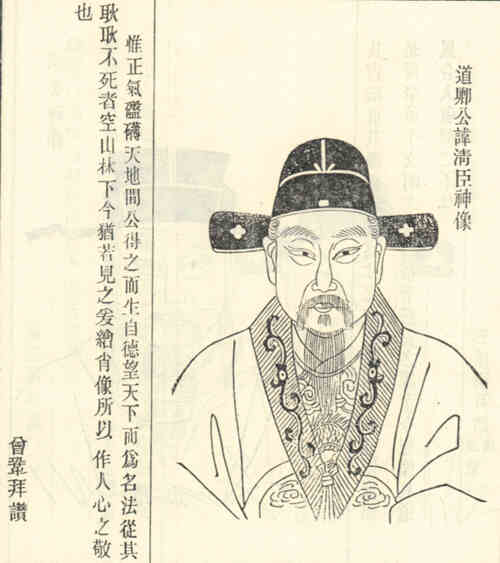 道卿公諱清臣神像
惟正氣磅礴天地間公得之而生自德望天下而為名法從其
耿耿不死者空山林下今猶若見之爰繪肖像所以作人心之敬
也
曾鞏拜讃